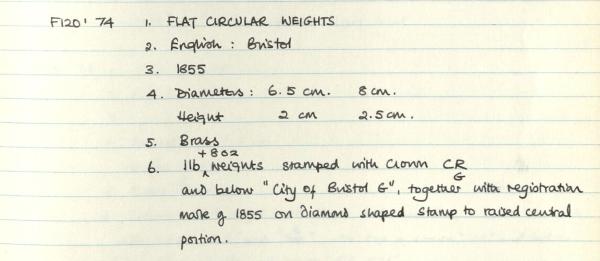 F120' 74 1. FLAT CIRCULAR WEIGHTS
2. English : Bristol
3. 1855
4. Diameters : 6.5 cm. 8 cm.
Height 2 cm 2.5 cm.
5. Brass
+ 8 oz
6. 1lb ^ weights stamped with Crown CR
G
and below "City of Bristol G", together with registration
mark of 1855 on diamond shaped stamp to raised central
portion.